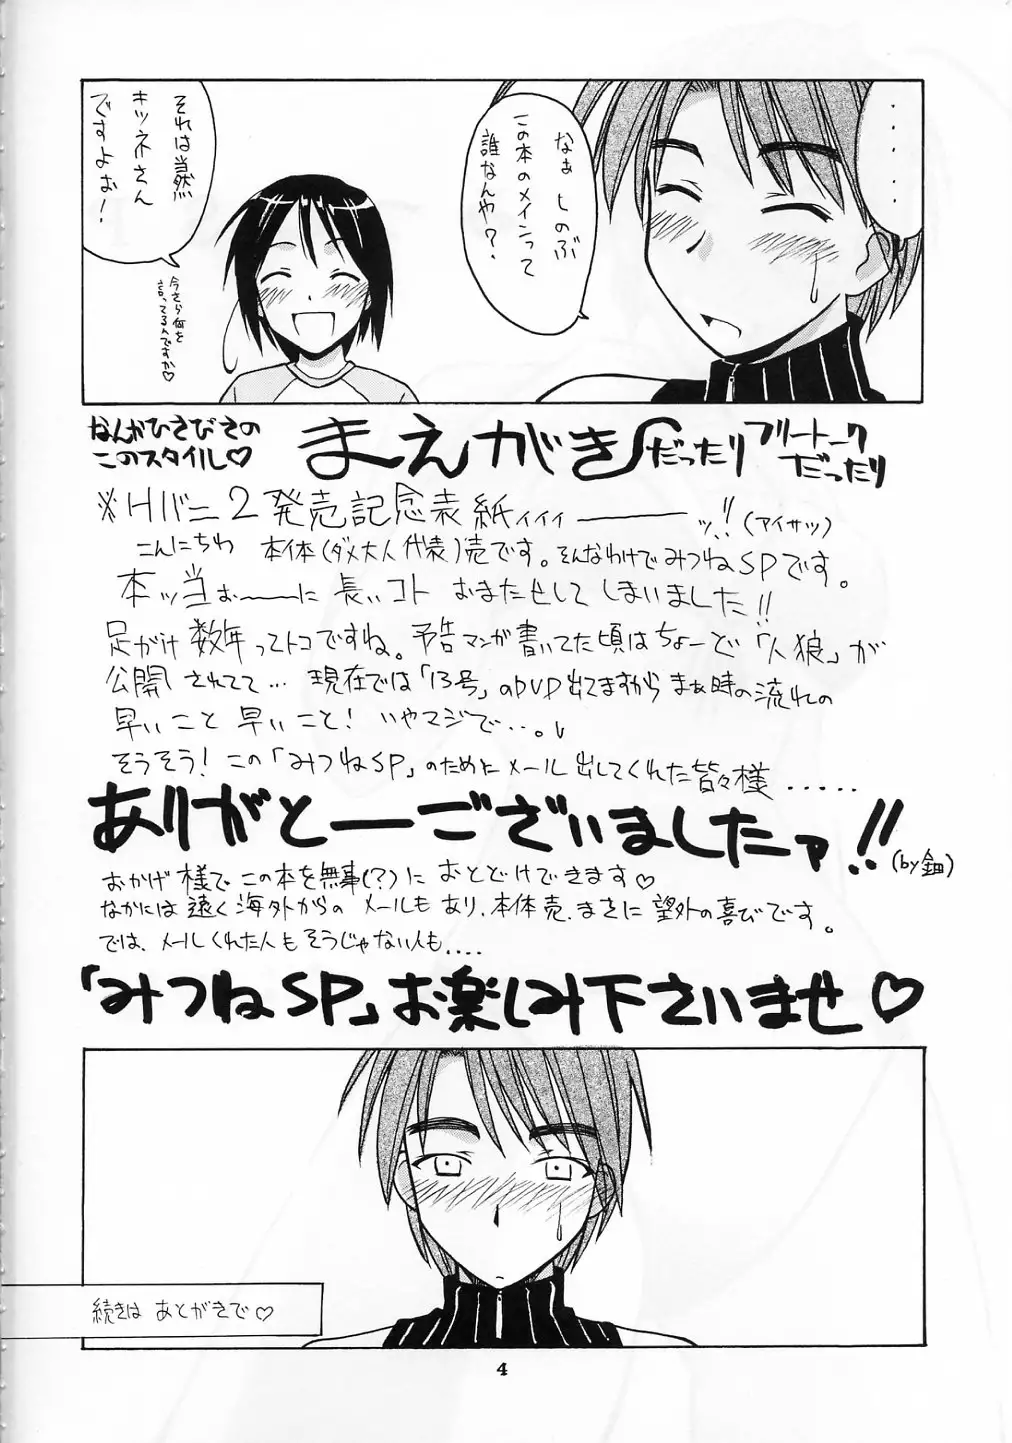 ・・・・・・・
なぁ しのぶ
この本のメインって
誰なんや?
それは当然
キツネさん
ですよぉ!
今さら何を
言ってるんですか♡
なんかひさびさの
このスタイル♡
まえがき
だったり
フリートーク
だったり
※Hバニ2発売記念表紙ィィィ―――ッ!!(アイサツ)
こんにちわ 本体(ダメ大人代表)売です。そんなわけでみつねSPです。
本ッ当ぉ――に 長いコト おまたせして しまいました!!
足かけ 数年ってトコですね。予告マンガ書いてた頃はちょーど「人狼」が
公開されてて… 現在では「13号」のDVD出てますから まぁ時の流れの
早いこと 早いこと! いやマジで…。
そうそう! この「みつねSP」のためにメール出してくれた皆々様.....
ありがとーございましたァ!!
おかげ様で この本を無事(?)に おとどけできます♡
なかには遠く海外からの メールもあり、本体売、まさに 望外の喜びです。
では、メールくれた人もそうじゃない人も....
「みつねSP」お楽しみ下さいませ♡
続きは あとがきで♡
4